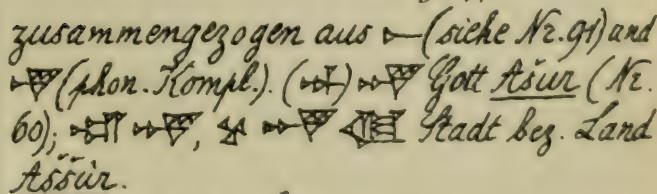 zusammengezogen aus 𒀸 (siehe Nr. 91) und
𒋩 (phon. Kompl.). (𒀭) 𒀸𒋩 Gott Ašur (Nr.
60); 𒌷 𒀸𒋩, 𒆳 𒀸𒋩 𒆠 Stadt bez. Land
Aššur.